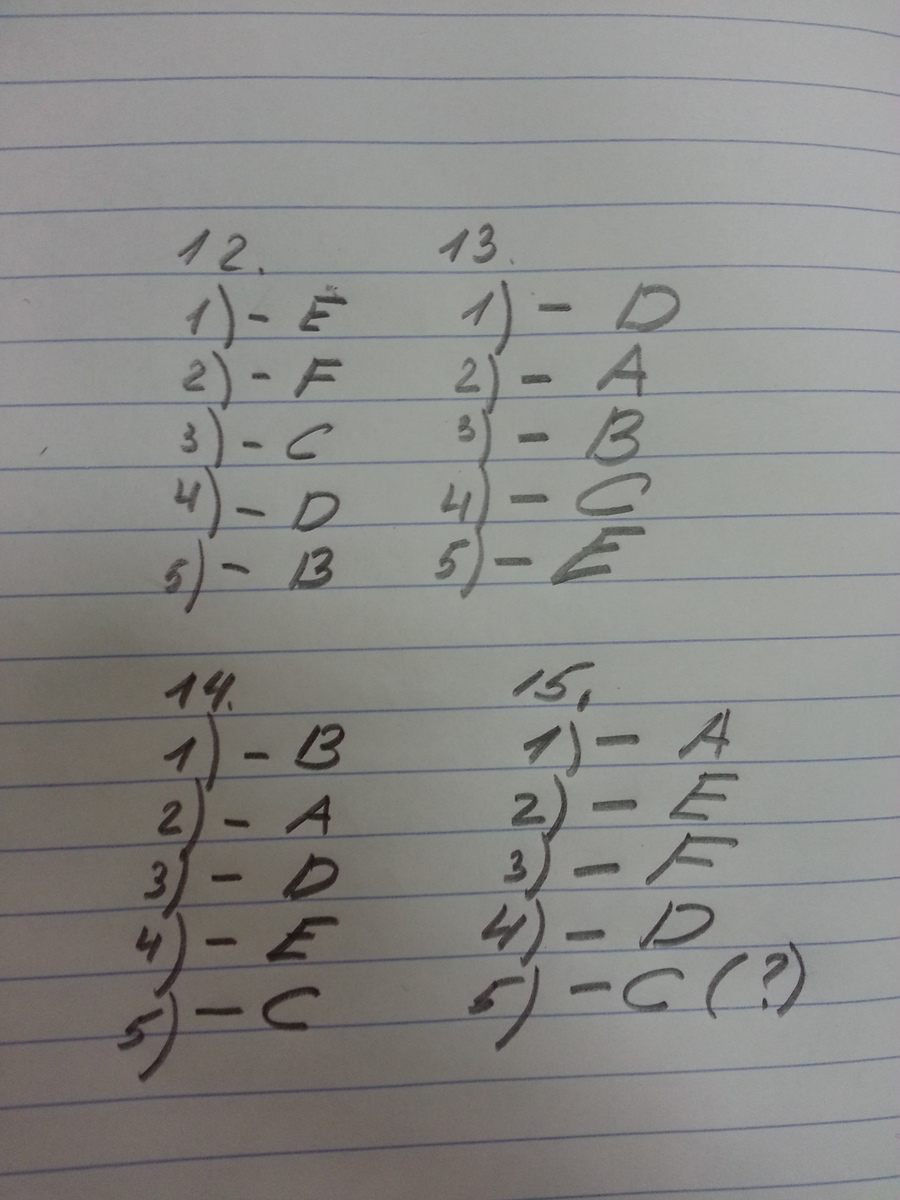 12.
1) - E
2) - F
3) - C
4) - D
5) - B
13.
1) - D
2) - A
3) - B
4) - C
5) - E
14.
1) - B
2) - A
3) - D
4) - E
5) - C
15.
1) - A
2) - E
3) - F
4) - D
5) - C (?)